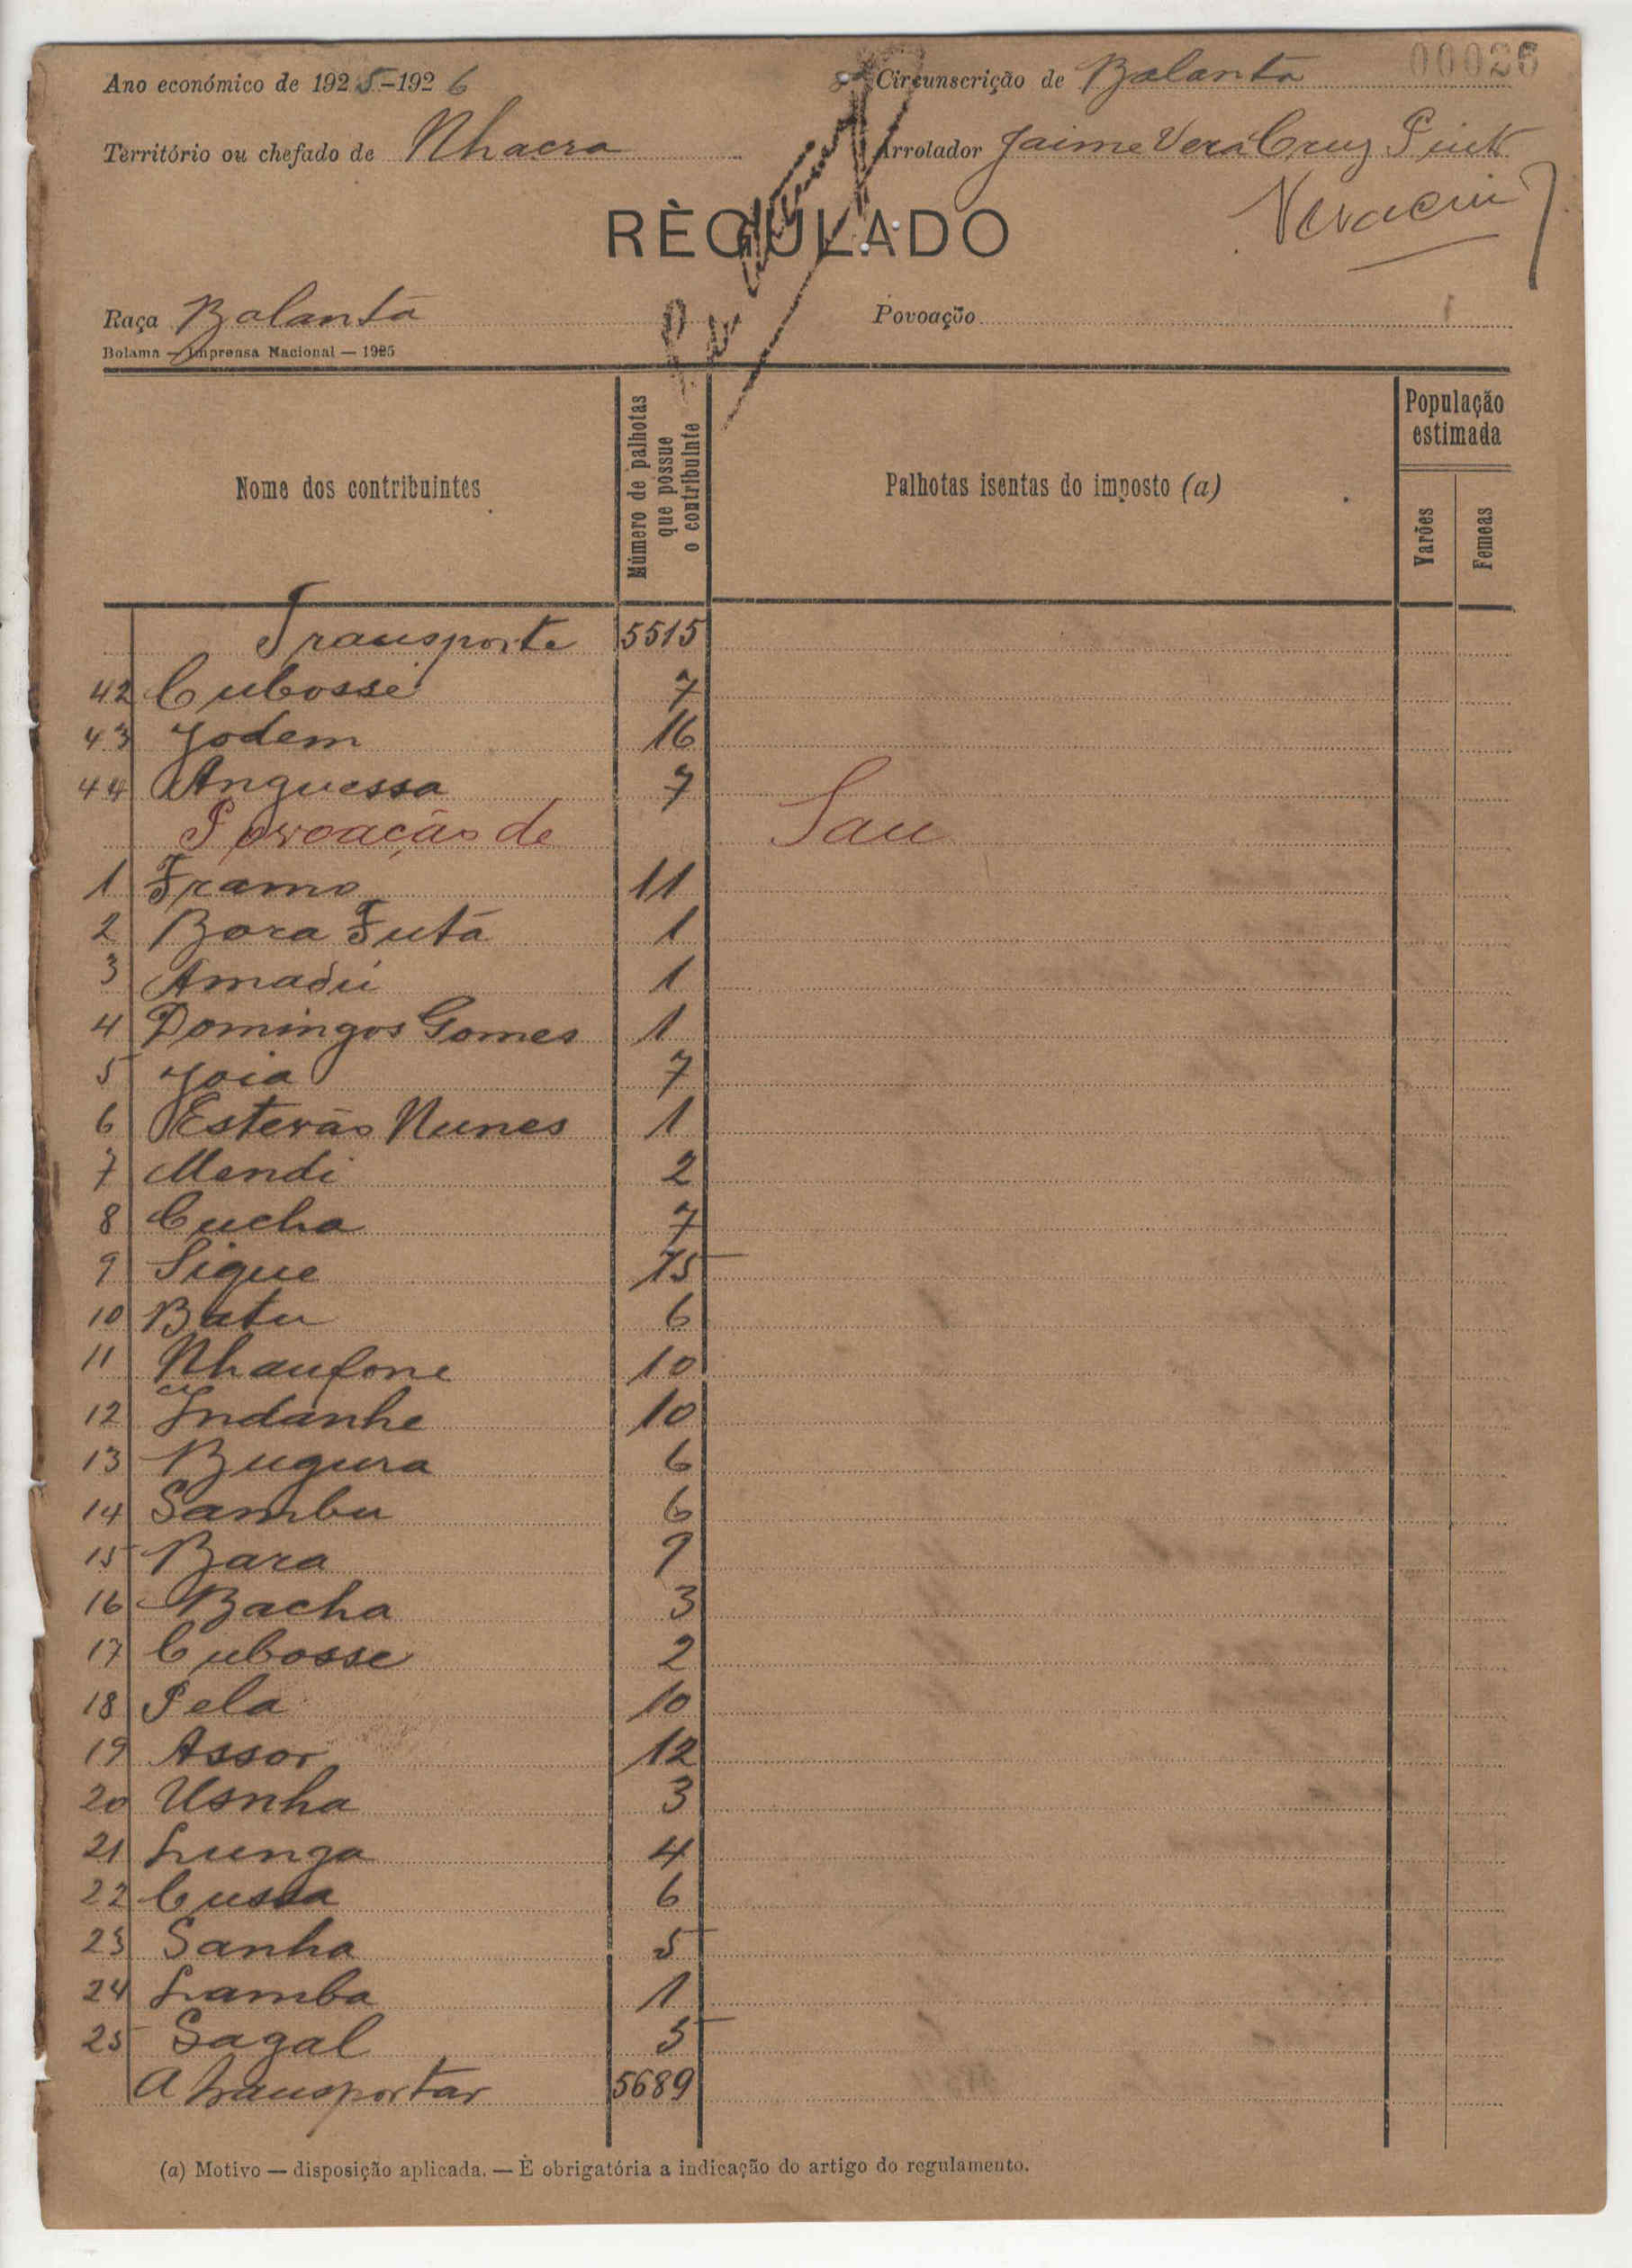 00026
Ano económico de 1925-1926 Circunscrição de Balanta
Território ou chefado de Nhacra Arrolador Jaime Vera Cruz
RÈGULADO
Raça Balanta Povoação
Bolama — Imprensa Nacional — 1925
Nome dos contribuintes Número de palhotas que possue o contribuinte Palhotas isentas do imposto (a) População estimada
Varões Femeas
Transporte 5515
42 Cubosse 7
43 Jodem 16
44 Anguessa 7
Povoação de Sau
1 Framo 11
2 Bora Futá 1
3 Amadú 1
4 Domingos Gomes 1
5 Joia 7
6 Estevão Nunes 1
7 Mendi 2
8 Cucha 7
9 Sigue 15
10 Batu 6
11 Nhaufone 10
12 Indanhe 10
13 Bugura 6
14 Sambu 6
15 Bara 9
16 Bacha 3
17 Cubosse 2
18 Pela 10
19 Assor 12
20 Usnha 3
21 Lunga 4
22 Cussa 6
23 Sanha 5
24 Lamba 1
25 Sagal 5
A transportar 5689
(a) Motivo — disposição aplicada. — É obrigatória a indicação do artigo do regulamento.